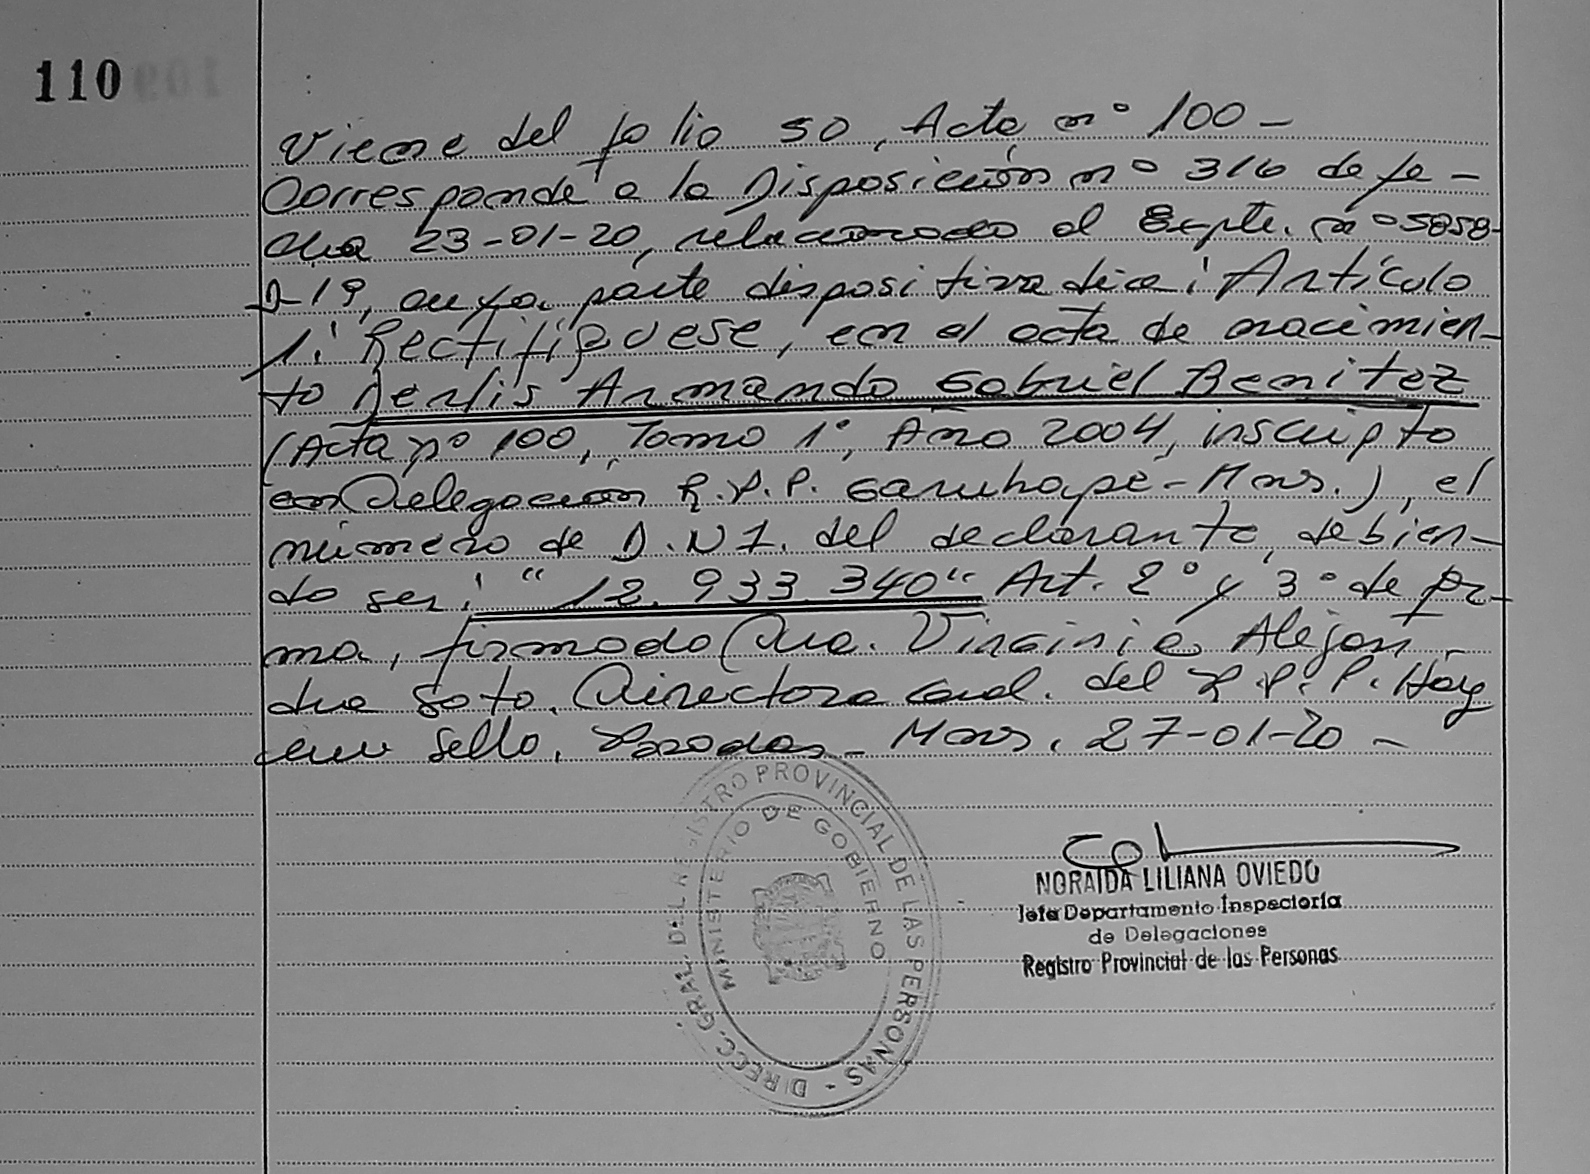 110
Viene del folio 50, Acta nº 100 -
Corresponde a la Disposición nº 316 de fe-
cha 23-01-20, relacionado al Expte. nº 5858-
D-19, cuya parte dispositiva dice: Artículo
1: Rectifíquese, en el acta de nacimien-
to Derlis Armando Gabriel Benitez
(Acta nº 100, Tomo 1º, Año 2004, inscripto
en Delegación R.P.P. Garuhapé-Mnes.), el
número de D.N.I. del declarante, debien-
do ser: "12.933.340" Art. 2º y 3º de for-
ma, firmado Dra. Virginia Alejan-
dra Soto. Directora Gral. del R.P.P. Hay
un sello. Posadas - Mnes. 27-01-20 -
DIRECC. GRAL. DEL REGISTRO PROVINCIAL DE LAS PERSONAS -
MINISTERIO DE GOBIERNO
NORAIDA LILIANA OVIEDO
Jefa Departamento Inspectoría
de Delegaciones
Registro Provincial de las Personas